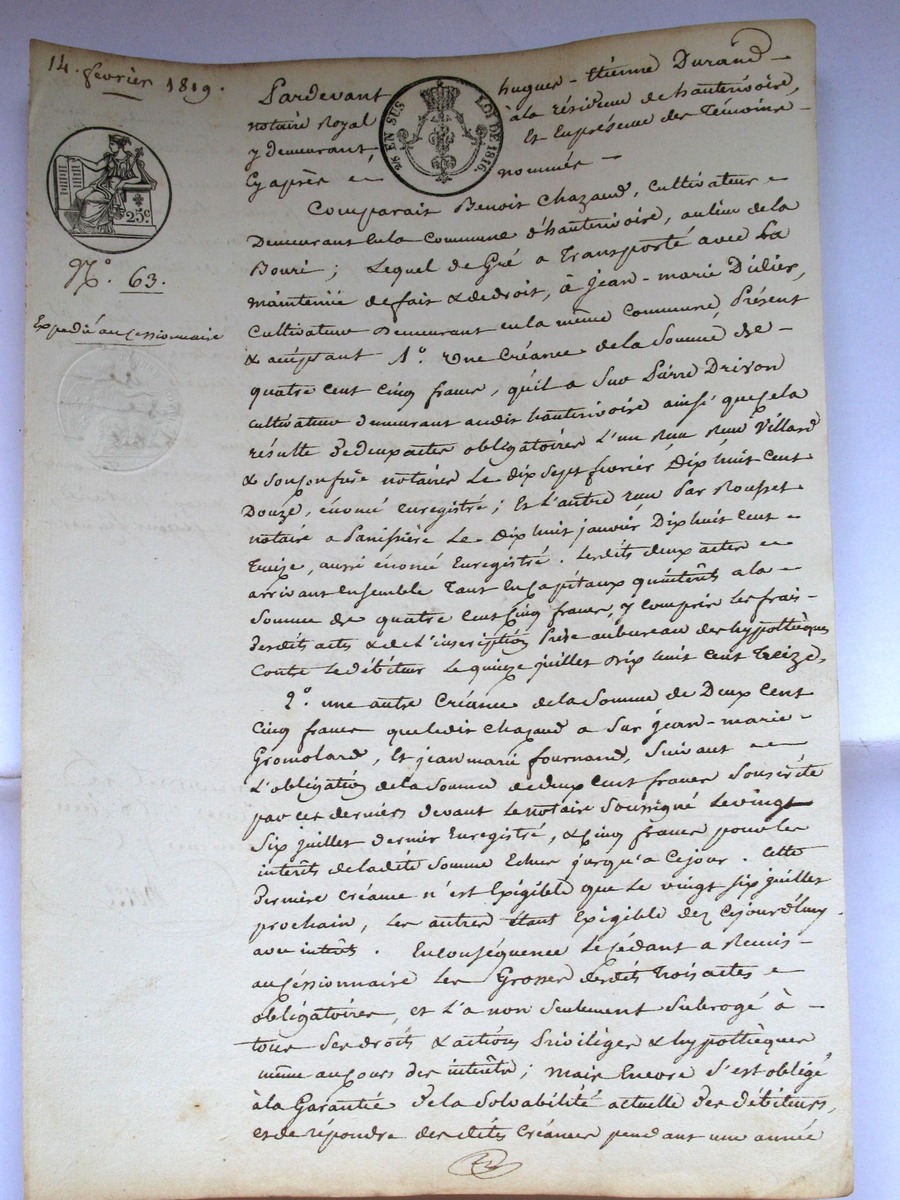 14. février 1819.
Pardevant hugues-Etienne Durand
notaire Royal à la résidence de hauterivoire,
y demeurant, Et En présence des Témoins
Cyaprès nommés
EN SUS LOI DE 1816.
25c.
N.º 63.
Expedié au Cessionnaire
Comparait Benoit Chazaud, Cultivateur
Demeurant en la Commune d'hauterivoire, au lieu de la
Bouri ; Lequel de Gré a Transporté avec La
maintenüe de fait & de droit, à Jean-marie Didier,
Cultivateur Demeurant en la même Commune, Présent
& acceptant 1º. Une Créance de la Somme de
quatre cent cinq francs, qu'il a Sur Pierre Drivon
cultivateur demeurant audit hauterivoire ainsi que cela
résulte de deux actes obligatoires L'un Reçu Villard
& Son Confrère notaires Le dix Sept février Dix huit Cent
Douze, énoncé enregistré ; Et L'autre reçu Par Rousset
notaire a Panissière Le Dix huit janvier Dix huit Cent
Treize, aussi énoncé Enregistré. Lesdits deux actes
arrivant ensemble Tant En Capitaux qu'intérêts a la
Somme de quatre Cent Cinq francs, y compris Les frais
desdits acts & de L'inscription Prise au bureau des hypothèques
Contre Le débiteur Le quinze juillet dix huit Cent Treize.
2º. une autre Créance de la Somme de Deux Cent
Cinq francs que ledit Chazaud a Sur jean-marie
Gromolard, Et jean marie fournand, Suivant
L'obligation de la Somme de deux Cent francs Souscrite
par ces derniers devant Le notaire Soussigné Le vingt
Six juillet dernier Enregistré, & Cinq francs pour les
intérêts de la dite Somme Echus jusqu'à Ce jour. Cette
dernière Créance n'est Exigible que Le vingt Six juillet
prochain, Les autres étant Exigible dez Cejourd'huy
avec intérêts. En Conséquence Le Cédant a Remis
au Céssionnaire Les Grosses desdits Trois actes
obligatoires, et L'a non Seulement Subrogé à
tous Ses droits & actions Privilèges & hypothèques
même au Cours des intérêts ; mais Encore S'est obligé
à la Garantie de la Solvabilité actuelle des débiteurs,
et de répondre des dites Créances pendant une année